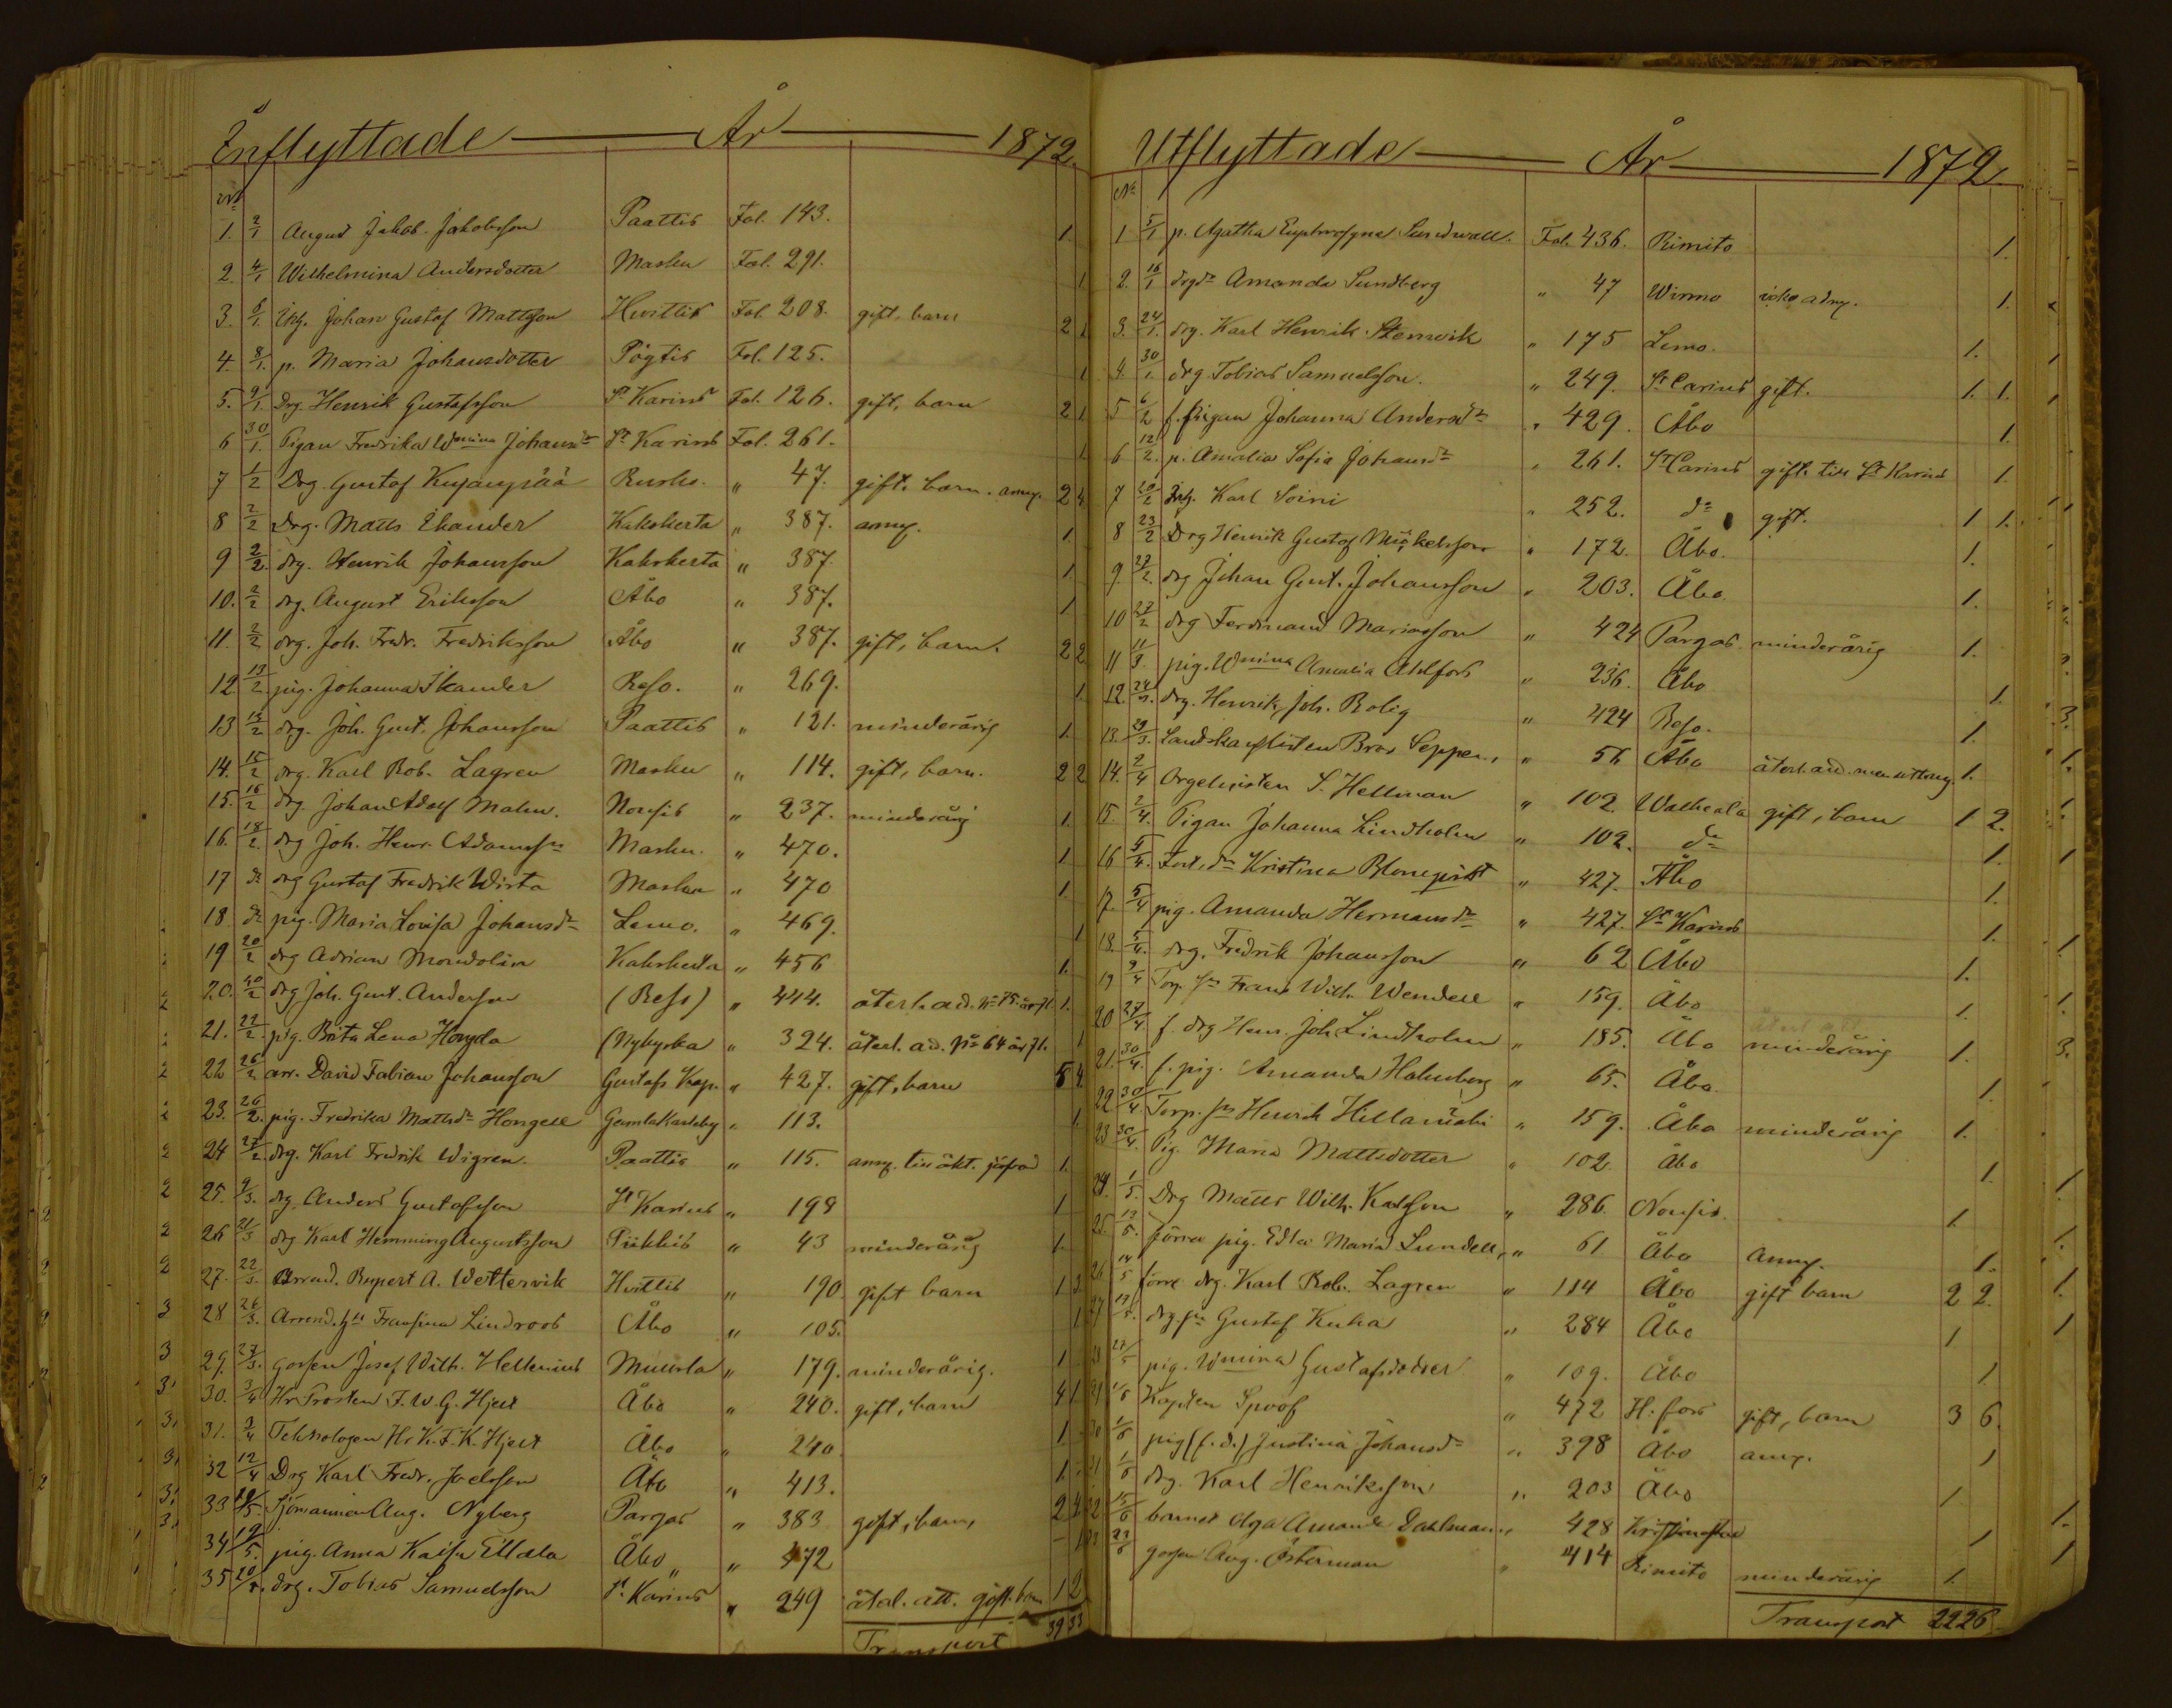 Inflyttade År 1872.
No
1. 2/1 August Jakob Jakobsson Paattis Fol. 143. 1.
2. 4/1 Wilhelmina Andersdotter Masku Fol. 291. 1
3. 8/1. Johan Gustaf Mattsson Hvittis Fol. 208. gift, barn 2 1
4. 8/1. p. Maria Johansdotter Pöytis Fol. 125. 1
5. 9/1 Drg. Henrik Gustafsson St Karins Fol. 126. gift, barn 2 1
6 30/1. Pigan Fredrika Wmina Johansdr St Karins Fol. 261. 1
7 1/2 Drg. Gustaf Rusko. " 47. gift. barn. anny. 2 4
8 2/2 Drg. Matts Ikander Kakskerta " 387. anny. 1
9 2/2. drg. Henrik Johansson Kakskerta " 387. 1
10. 2/2 drg. August Eriksson Åbo " 387. 1
11. 2/2 drg. Joh. Fredr. Fredriksson Åbo " 387. gift, barn. 2 2
12. 13/2 pig. Johanna Ikander Reso. " 269. 1.
13 15/2 drg. Joh. Gust. Johansson Paattis " 121. minderårig 1.
14. 15/2 drg. Karl Rob. Lagren Masku " 114. gift, barn. 2 2
15. 16/2 drg. Johan Adolf Malm. Nousis " 237. minderårig 1.
16. 18/2. drg Joh. Henr. Adamsson Masku. " 470. 1
17 do drg Gustaf Fredrik Wirta Masku " 470 1.
18. do pig. Maria Lovisa Johansdr Lemo. " 469. 1
19 20/2 drg Adrian Mondolin Kakskerta " 456 1.
20. 20/2 drg Joh. Gust. Anderson (Reso) " 444. återl. ad. 1.
21. 22/2. pig. Brita Lena (Nykyrka " 324. återl. ad. 1
22 26/2 arr. David Fabian Johansson Gustafs Kap. " 427. gift, barn 5 4
23. 26/2. pig. Fredrika Mattsdr Hongell Gamlakarleby " 113. 1.
24 27/2. drg. Karl Fredrik Wigren. Paattis " 115. 1.
25. 9/3. drg. Anders Gustafsson St Karins " 198 1
26 21/3 drg Karl Hemming Augustsson Piikkis " 43 minderårig 1.
27. 22/3. Arrend. Rupert A. Wettervik Hvittis " 190. gift barn 1 3
28 26/3. Fransina Lindroos Åbo " 105. 1
29. 27/3. gossen Josef Wilh. Hellenius Muurla " 179. minderårig. 1
30. 3/4 Hr Prosten F. W. G. Hjelt Åbo " 240. gift, barn 4 1
31. 3/4 Teknologen Hr K. F. K. Hjelt Åbo " 240. 1
32 12/4 Drg Karl Fredr. Joelsson Åbo " 413. 1.
33 Sjömannen Aug. Nyberg Pargas " 383 gift, barn, 2 4
34 19/5. pig. Anna Kaisa Ellala Åbo " 472 – 1
35 20/5. drg. Tobias Samuelsson St. Karins " 249 gift. barn 1 2
Transport 39 33
Utflyttade År 1872.
No
1 5/1 p. Agatha Euphrosyne Sundwall. Fol. 436. Rimito 1.
2. 16/1 Amanda Sundberg " 47 Wirmo icke adny. 1.
3. 24/1. drg. Karl Henrik Stenvik " 175 Lemo. 1.
4. 30/1. drg Tobias Samuelsson. " 249. St Carins gift. 1. 1.
5 6/2 f. pigan Johanna Andersdr " 429. Åbo 1.
6 12/2. p. Amalia Sofia Johansdr " 261. St Carins gift. till St Karins 1.
7 Karl Soini " 252. do gift. 1 1.
8 23/2 Drg Henrik Gustaf Mickelsson " 172. Åbo. 1.
9. 27/2. drg Johan Gust. Johansson " 203. Åbo. 1.
10 27/2 drg Ferdinand Mariasson " 424 Pargas. minderårig 1.
11 11/3. pig. Wmina Amalia Ahlfors " 236. Åbo 1.
12. drg. Henrik Joh. Rolig " 424 Reso. 1.
13. 29/3. Landskanslisten Bror Seppen., " 56 Åbo 1.
14. 2/4 Orgelnisten S. Hellman " 102. Walkeala gift, barn 1 2.
15. 2/4. Pigan Johanna Lindholm " 102. do 1.
16 5/4. Kristina Blomqvist " 427. Åbo 1.
17. 5/4 pig. Amanda Hermansdr " 427. St Karins 1.
18. 5/4. drg. Fredrik Johansson " 62 Åbo 1.
19 9/4 Torp. sn Frans Wilh. Wendell " 159. Åbo 1.
20 27/4. f. drg Henr. Joh. Lindholm " 185. Åbo minderårig 1.
21. 30/4. f. pig. Amanda Holmberg " 65. Åbo. 1.
22 30/4 Torp. sn Henrik " 159. Åbo minderårig 1.
23 30/4. Pig. Maria Mattsdotter " 102 Åbo 1.
24. 1/5. Drg Matts Wilh. Karlsson " 286. Nousis. 1.
25. 13/5. förra pig. Edla Maria Lundell, " 61 Åbo anny. 1.
26 förre drg. Karl Rob. Lagren " 114 Åbo gift barn 2 2.
27 drg. sn Gustaf Kuha " 284 Åbo 1
28 pig. Wmina Gustafsdotter " 109. Åbo 1
29 Kapten Spoof " 472 H:fors gift, barn 3 6.
30 1/6 pig (f. d.) Justina Johansdr " 398 Åbo anny. 1
31 1/6 drg. Karl Henriksson " 203 Åbo 1.
32 15/6 barnet Olga Amanda Dahlman " 428 Kristinestad 1
33 gossen Aug. Österman " 414 Rimito minderårig 1.
Transport 22 26